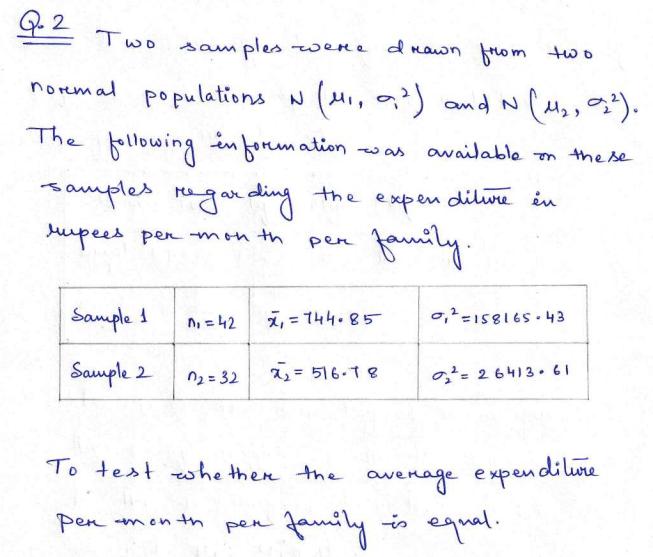 Q. 2 Two samples were drawn from two
normal populations N (μ₁, σ₁²) and N (μ₂, σ₂²).
The following information was available on these
samples regarding the expenditure in
rupees per month per family.
Sample 1 n₁ = 42 x̄₁ = 744.85 σ₁² = 158165.43
Sample 2 n₂ = 32 x̄₂ = 516.78 σ₂² = 26413.61
To test whether the average expenditure
per month per family is equal.